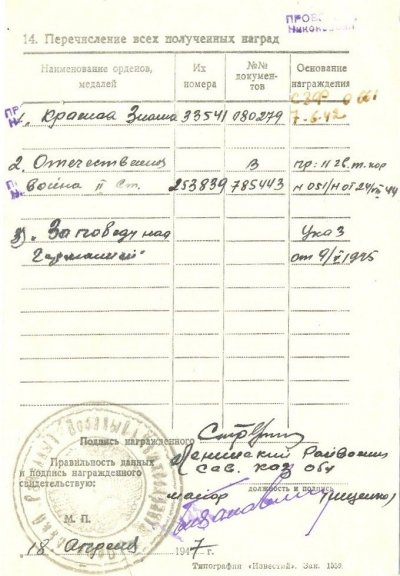 14. Перечисление всех полученных наград
Наименование орденов, медалей
Их номера
№№ документов
Основание награждения
1. Красная Знамя 33541 080279 7.6.42
2. Отечественная В пр: 11 гв. т. кор
война II ст. 253839 785443 н 051/н от 24/VII 44
3) "За победу над Указ
Германией" от 9/V 1945
Подпись награжденного
Правильность данных
и подпись награжденного
свидетельствую:
Ленинский Райвоен
Сав. каз обл
майор
должность и подпись
М. П.
18 апреля 1947 г.
Типография «Известий». Зак. 1559.